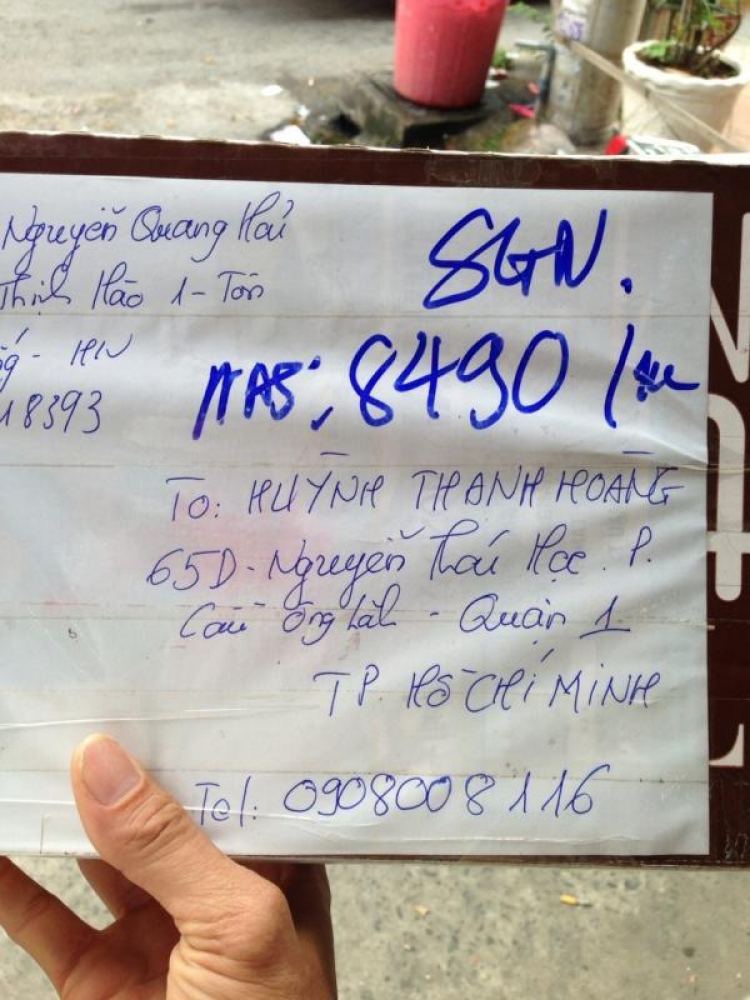 Nguyễn Quang Hải
Thịnh Hào 1 - Tôn
HN
18393
SGN.
8490
To: HUỲNH THANH HOÀNG
65D - Nguyễn Thái Học. P.
Cầu Ông Lãnh - Quận 1
TP. HỒ CHÍ MINH
Tel: 0908008116